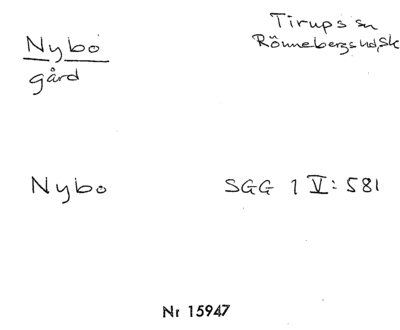 Nybo
gård
Tirups sn
Rönnebergs hd, Sk
Nybo
SGG 1 V: 581
Nr 15947